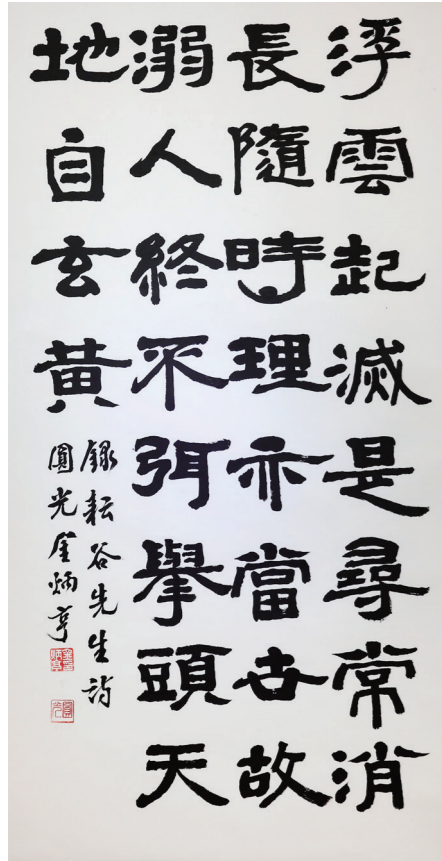 浮雲起滅是尋常消
長隨時理亦當世故
溺人終不弭擧頭天
地自玄黃
錄耘谷先生詩
圓光金炳亨